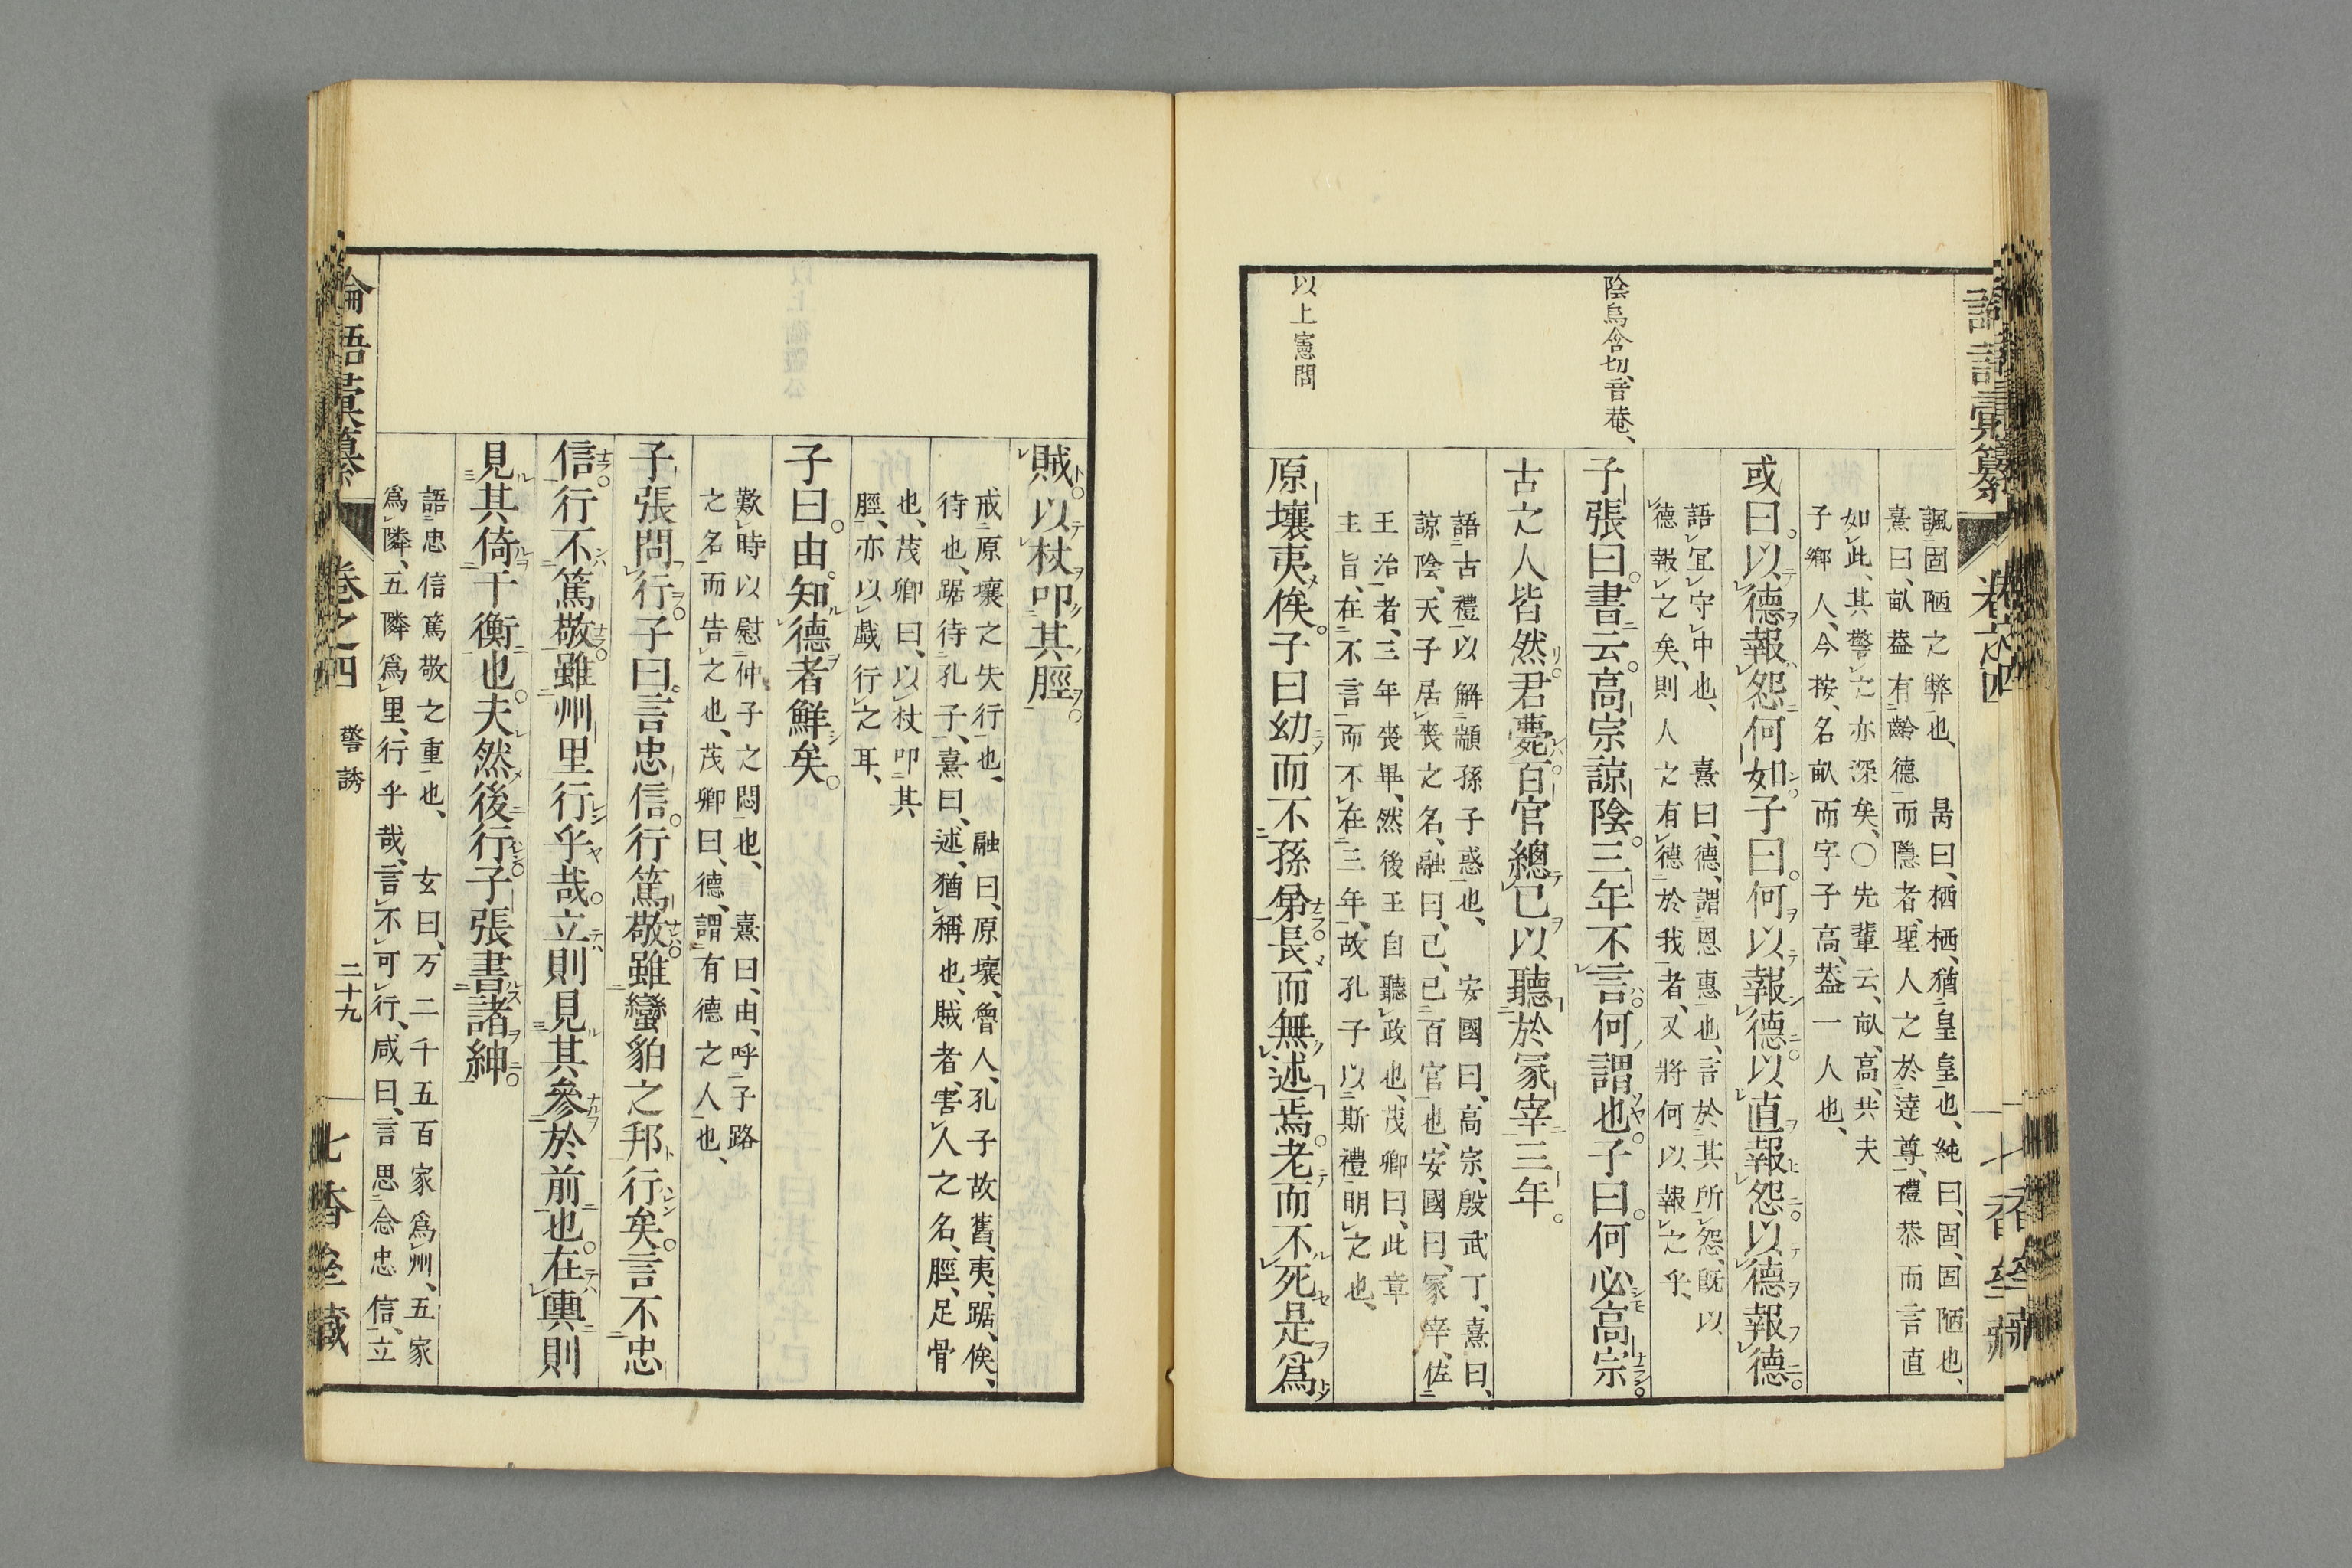 諷固陋之弊也、 勗曰、栖栖、猶皇皇也、純曰、固、固陋也、
熹曰、畝葢有齡德而隱者、聖人之於達尊、禮恭而言直
如此、其警之亦深矣、〇先輩云、畝、高、共夫
子鄉人、今按、名畝而字子高、葢一人也、
或曰。以德報怨何如子曰。何以報德以直報怨以德報德。
語宜守中也、 熹曰、德、謂恩惠也、言於其所怨、既以
德報之矣、則人之有德於我者、又將何以報之乎、
陰烏含切、音菴、
子張曰。書云。高宗諒陰。三年不言何謂也。子曰。何必高宗。
古之人皆然。君薨。百官總已以聽於冢宰三年。
語古禮以解顓孫子惑也、 安國曰、高宗、殷武丁、熹曰、
諒陰、天子居喪之名、融曰、己、已百官也、安國曰、冢宰、佐
王治者、三年喪畢、然後王自聽政也、茂卿曰、此章
主旨、在不言而不在三年、故孔子以斯禮明之也、
以上憲問
原壤夷俟。子曰幼而不孫弟長而無述焉。老而不死是爲
賊。以杖叩其脛。
戒原壤之失行也、 融曰、原壤、魯人、孔子故舊、夷、踞、俟、
待也、踞待孔子、熹曰、述、猶稱也、賊者、害人之名、脛、足骨
也、茂卿曰、以杖叩其
脛、亦以戲行之耳、
子曰。由。知德者鮮矣。
歎時以慰仲子之悶也、 熹曰、由、呼子路
之名而告之也、茂卿曰、德、謂有德之人也、
子張問行。子曰。言忠信。行篤敬。雖蠻貊之邦行矣。言不忠
信。行不篤敬。雖州里行乎哉。立則見其參於前也。在輿則
見其倚于衡也。夫然後行。子張書諸紳。
語忠信篤敬之重也、 玄曰、万二千五百家爲州、五家
爲隣、五隣爲里、行乎哉、言不可行、咸曰、言思念忠信、立
論語彙纂 卷之四 警誘 二十九 七香堂藏